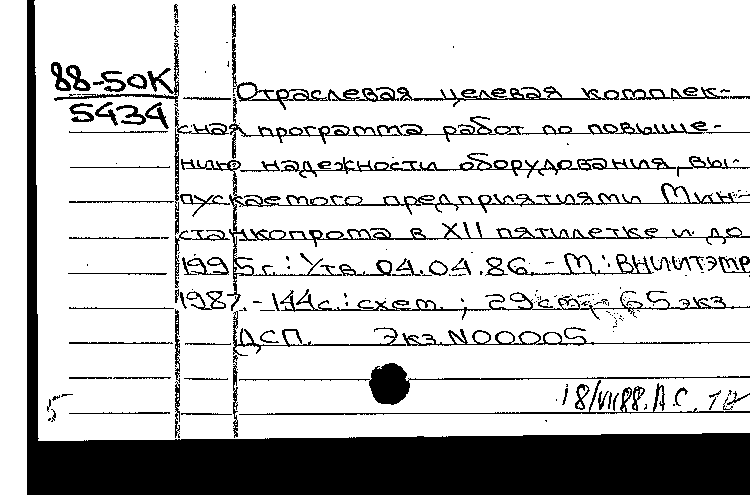 88-50К
5434
Отраслевая целевая комплек-
сная программа работ по повыше-
нию надежности оборудования, вы-
пускаемого предприятиями Мин-
станкопрома в XII пятилетке и до
1995г.: Утв. 04.04.86. - М.: ВНИИТЭМР
1987. - 144с.: схем. ; 29см. 65экз
ДСП. Экз. N00005.
18/VII88. А.С.
5